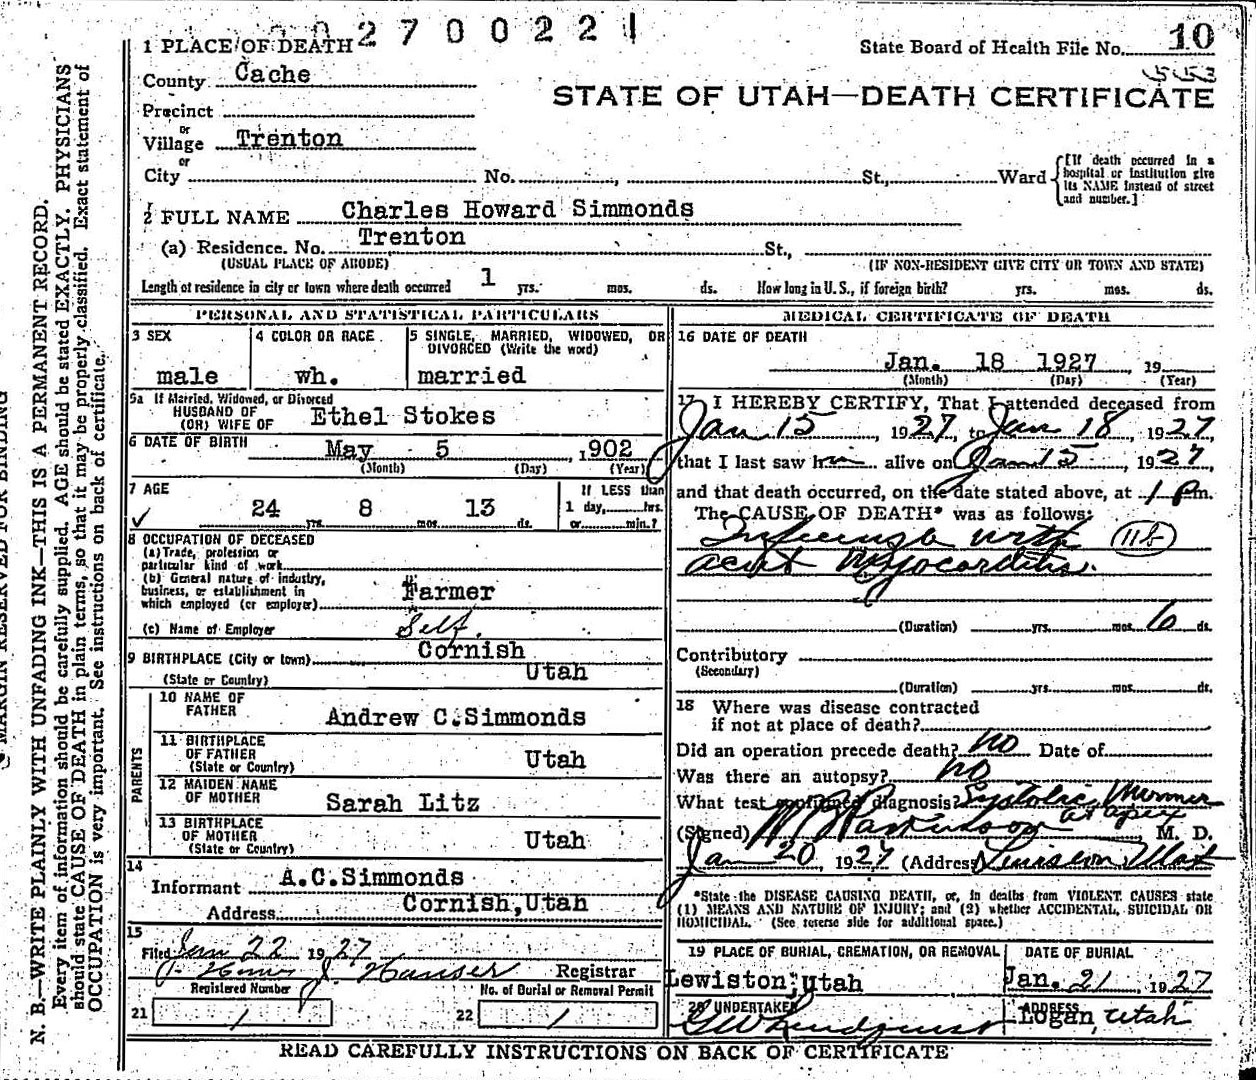 2700221
1 PLACE OF DEATH
State Board of Health File No. 10
553
County Cache
STATE OF UTAH—DEATH CERTIFICATE
Precinct
or
Village Trenton
or
City No. , St., Ward
[If death occurred in a
hospital or institution give
its NAME instead of street
and number.]
2 FULL NAME Charles Howard Simmonds
(a) Residence. No. Trenton St.,
(USUAL PLACE OF ABODE) (IF NON-RESIDENT GIVE CITY OR TOWN AND STATE)
Length of residence in city or town where death occurred 1 yrs. mos. ds. How long in U. S., if foreign birth? yrs. mos. ds.
PERSONAL AND STATISTICAL PARTICULARS
3 SEX
male
4 COLOR OR RACE
wh.
5 SINGLE, MARRIED, WIDOWED, OR
DIVORCED (Write the word)
married
5a If Married, Widowed, or Divorced
HUSBAND OF
(OR) WIFE OF Ethel Stokes
6 DATE OF BIRTH May 5 , 1902
(Month) (Day) (Year)
7 AGE
24 yrs. 8 mos. 13 ds.
If LESS than
1 day, hrs.
or min.?
8 OCCUPATION OF DECEASED
(a) Trade, profession or
particular kind of work
(b) General nature of industry,
business, or establishment in
which employed (or employer) Farmer
(c) Name of Employer Self.
9 BIRTHPLACE (City or town) Cornish
(State or Country) Utah
PARENTS
10 NAME OF
FATHER Andrew C.Simmonds
11 BIRTHPLACE
OF FATHER
(State or Country) Utah
12 MAIDEN NAME
OF MOTHER Sarah Litz
13 BIRTHPLACE
OF MOTHER
(State or Country) Utah
14
Informant A.C.Simmonds
Address Cornish,Utah
15
Filed Jan 22 1927
J. Hauser Registrar
Registered Number
21 1
No. of Burial or Removal Permit
22 1
MEDICAL CERTIFICATE OF DEATH
16 DATE OF DEATH
Jan. 18 1927 , 19
(Month) (Day) (Year)
17 I HEREBY CERTIFY, That I attended deceased from
Jan 15 , 1927, to Jan 18 , 1927,
that I last saw him alive on Jan 15 , 1927,
and that death occurred, on the date stated above, at 1 P.m.
The CAUSE OF DEATH* was as follows:
Influenza with 11b
acute Myocarditis.
(Duration) yrs. mos. 6 ds.
Contributory
(Secondary)
(Duration) yrs. mos. ds.
18 Where was disease contracted
if not at place of death?
Did an operation precede death? no Date of
Was there an autopsy? no
What test confirmed diagnosis? Systolic Murmer
at apex
(Signed) Parkinson , M. D.
Jan 20, 1927 (Address) Lewiston Utah
*State the DISEASE CAUSING DEATH, or, in deaths from VIOLENT CAUSES state
(1) MEANS AND NATURE OF INJURY; and (2) whether ACCIDENTAL, SUICIDAL OR
HOMICIDAL. (See reverse side for additional space.)
19 PLACE OF BURIAL, CREMATION, OR REMOVAL
Lewiston,Utah
DATE OF BURIAL
Jan. 21 , 1927
20 UNDERTAKER
ADDRESS
Logan, Utah
READ CAREFULLY INSTRUCTIONS ON BACK OF CERTIFICATE
MARGIN RESERVED FOR BINDING
N. B.—WRITE PLAINLY WITH UNFADING INK—THIS IS A PERMANENT RECORD.
Every item of information should be carefully supplied. AGE should be stated EXACTLY. PHYSICIANS
should state CAUSE OF DEATH in plain terms, so that it may be properly classified. Exact statement of
OCCUPATION is very important. See instructions on back of certificate.